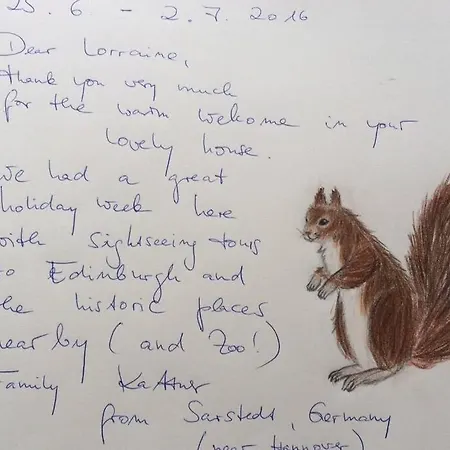 25.6 - 2.7. 2016
Dear Lorraine,
thank you very much
for the warm welcome in your
lovely house.
We had a great
holiday week here
with sightseeing tours
to Edinburgh and
the historic places
nearby (and Zoo!)
Family Kattner
from Sarstedt, Germany
(near Hannover)